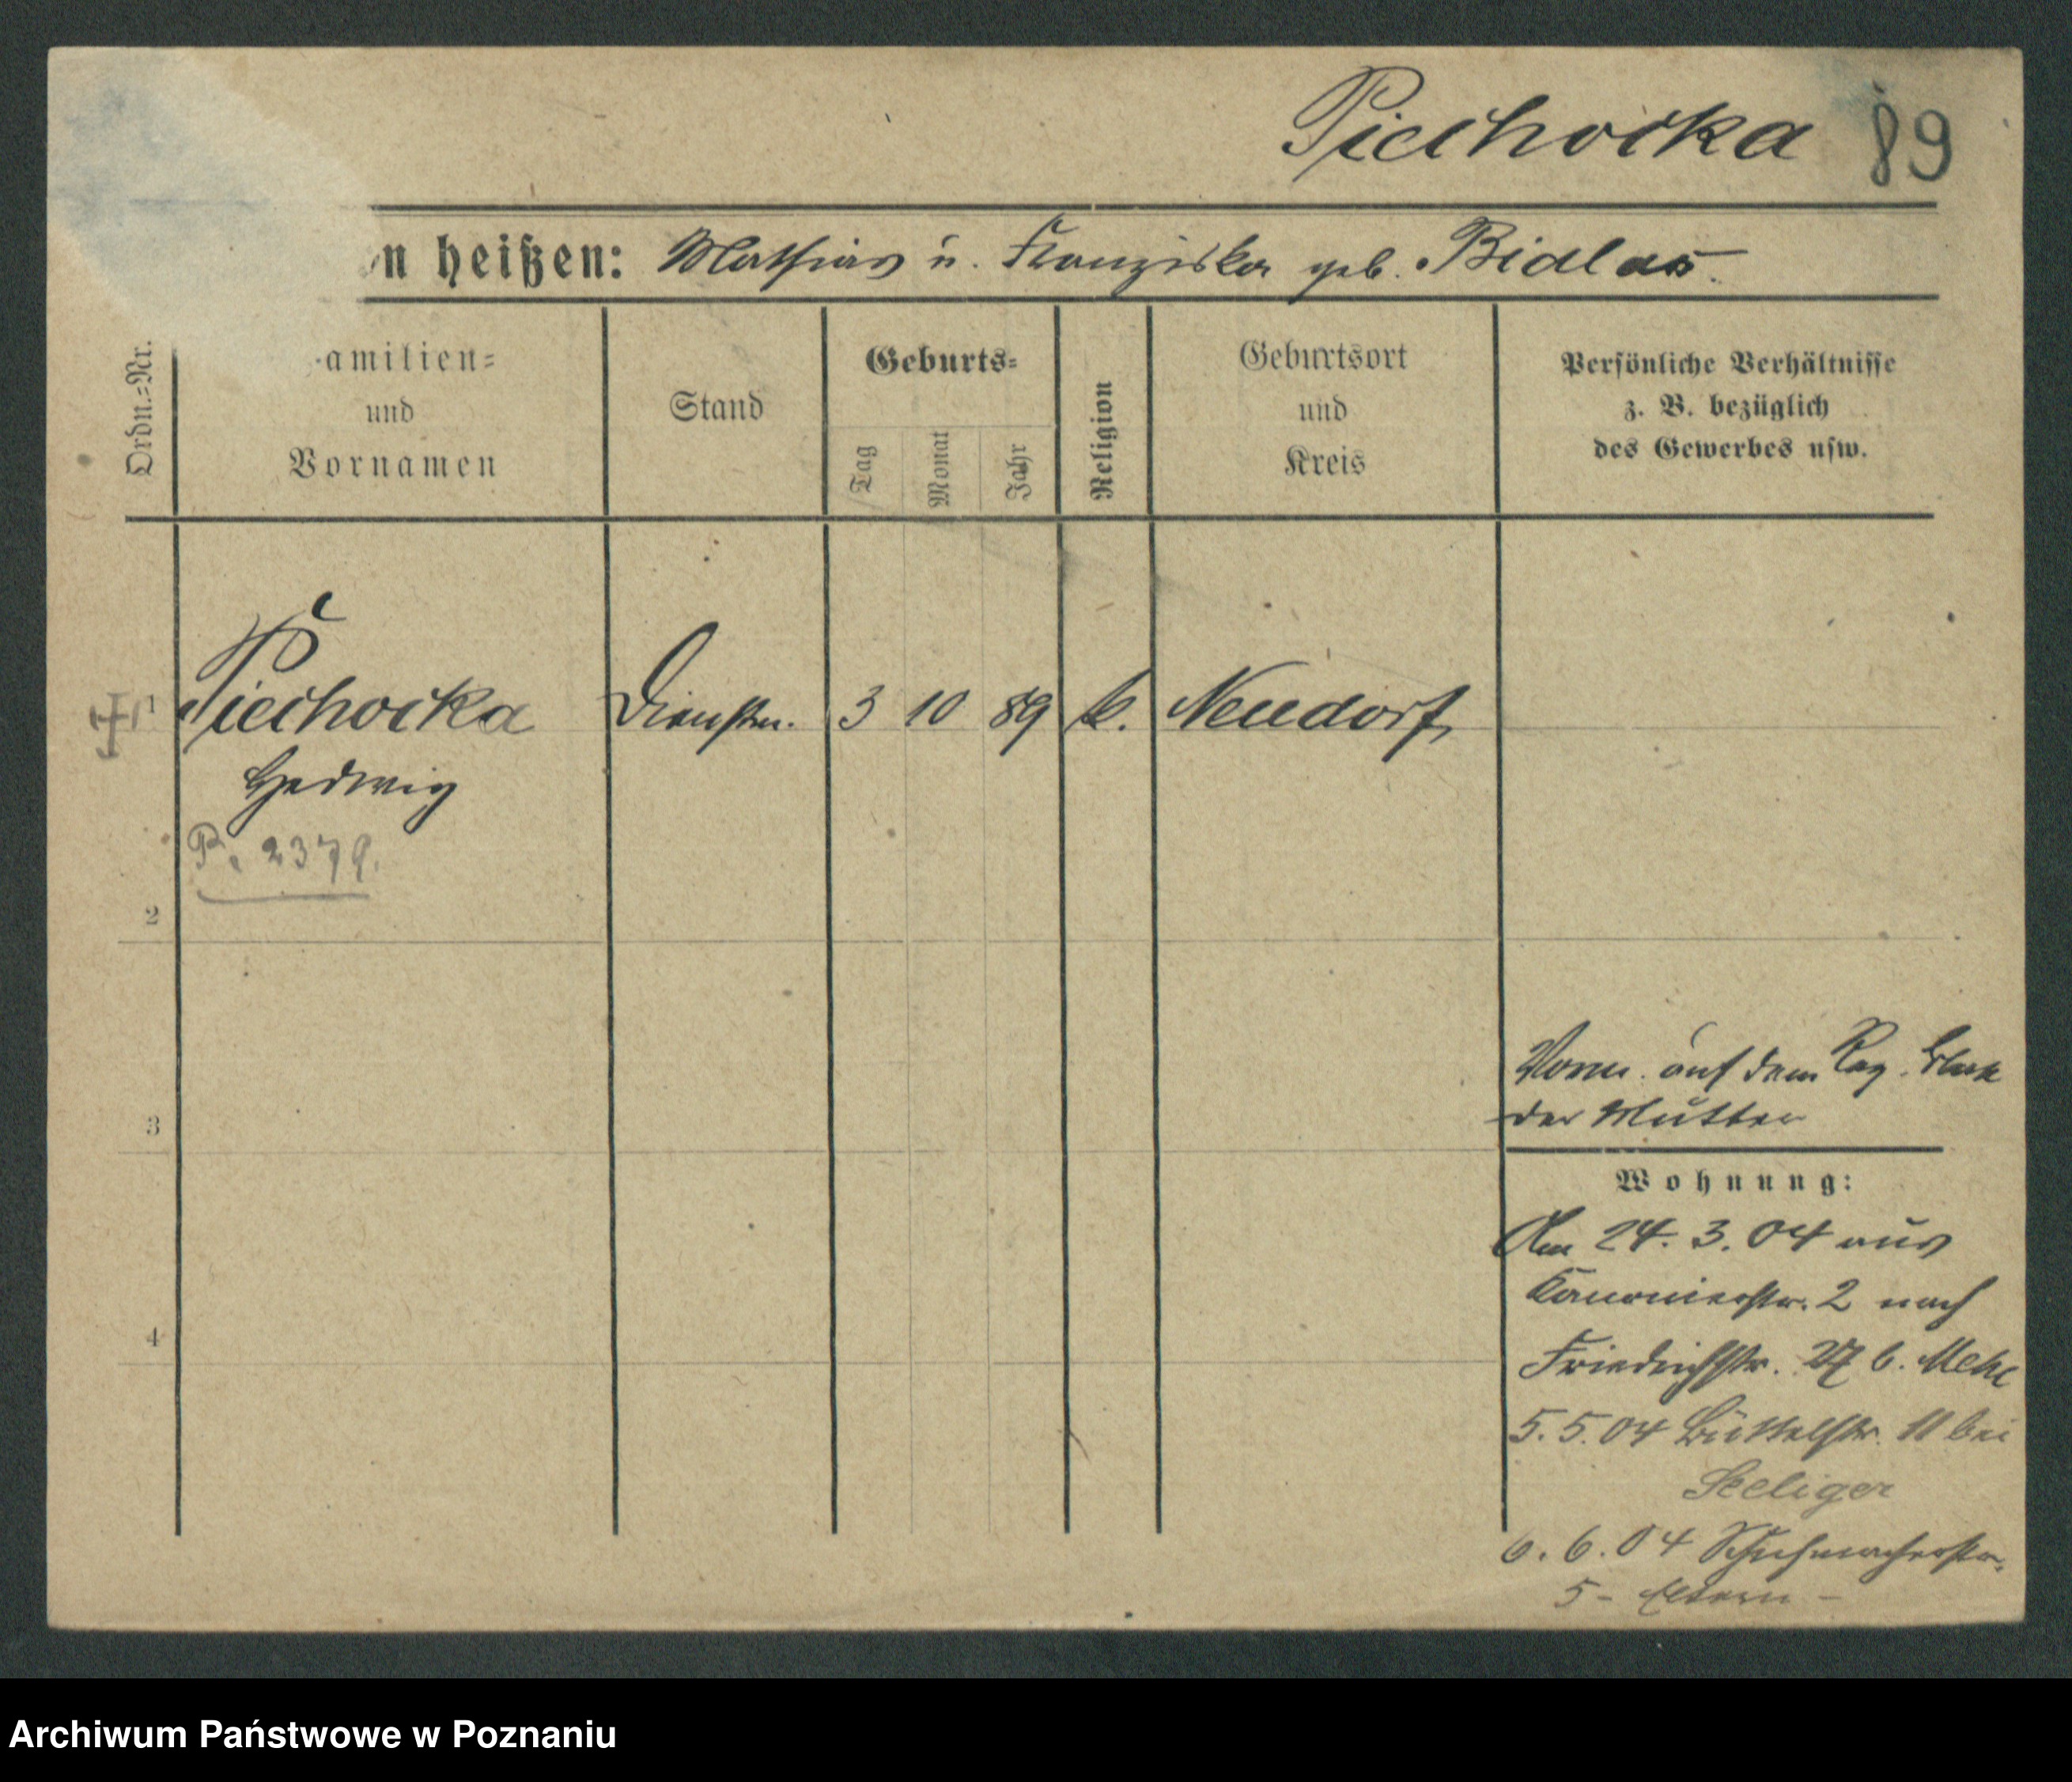 Piechocka 89
n heißen: Mathias u. Franziska geb. Bialas.
Ordn.=Nr.
amilien=
und
Vornamen
Stand
Geburts=
Tag
Monat
Jahr
Religion
Geburtsort
und
Kreis
Persönliche Verhältnisse
z. B. bezüglich
des Gewerbes usw.
1 Piechocka Dienstm. 3 10 89 k. Neudorf
Hedwig
P. 2379.
2
Verm. auf dem Reg. Blatt
der Mutter
3
Wohnung:
Am 24. 3. 04 aus
Kanonierstr. 2 nach
4
Friedrichstr. 27 b.
5. 5. 04 Büttelstr. 11 bei
Seeliger
6. 6. 04 Schuhmacherstr.
5 - Eltern -
Archiwum Państwowe w Poznaniu